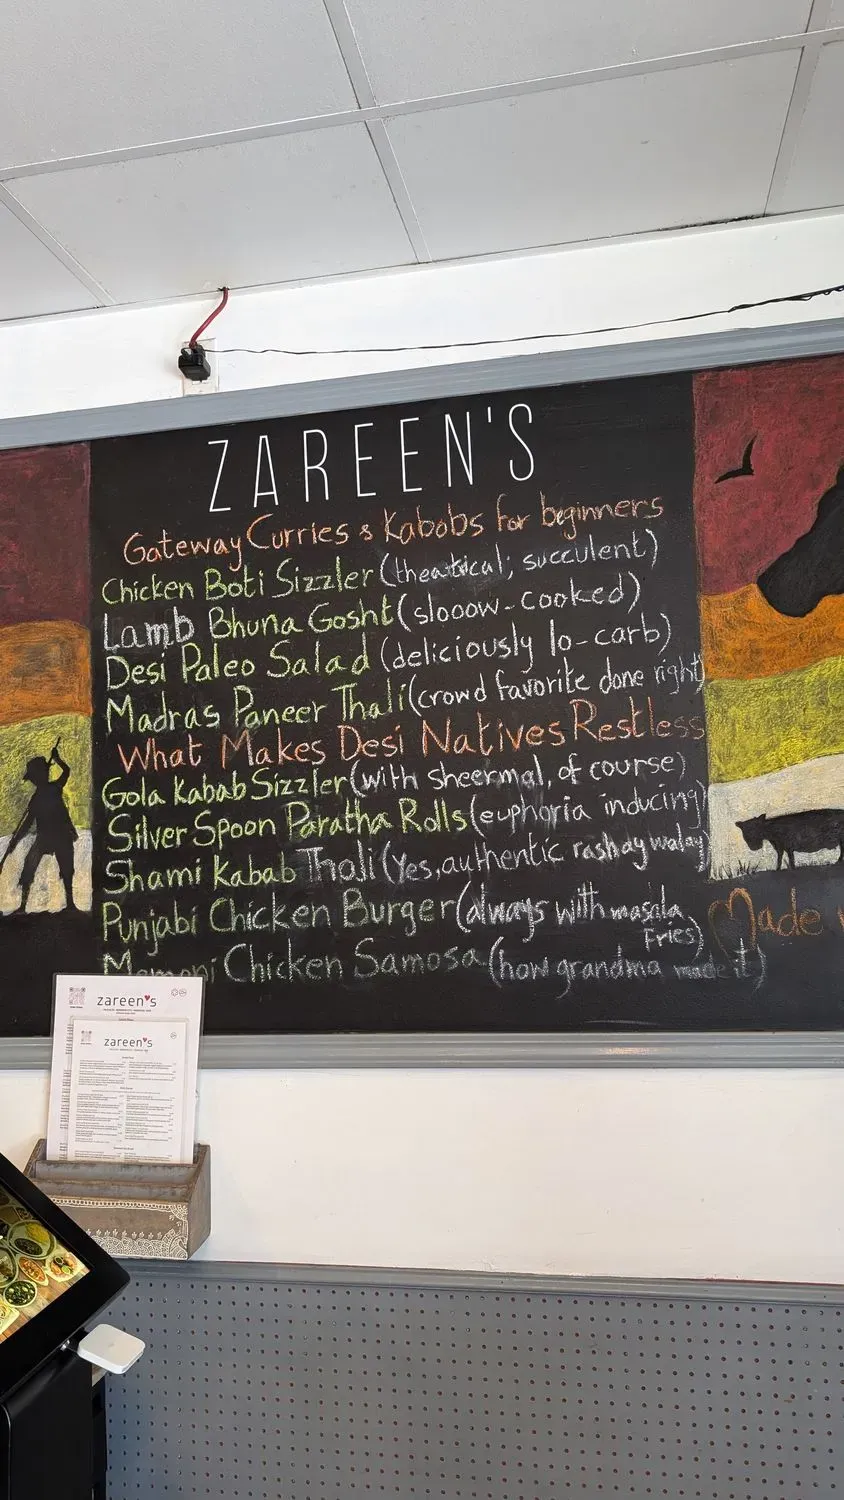 ZAREEN'S
Gateway Curries & Kabobs for beginners
Chicken Boti Sizzler (theatrical; succulent)
Lamb Bhuna Gosht (slooow-cooked)
Desi Paleo Salad (deliciously lo-carb)
Madras Paneer Thali (crowd favorite done right)
What Makes Desi Natives Restless
Gola Kabab Sizzler (with sheermal, of course)
Silver Spoon Paratha Rolls (euphoria inducing)
Shami Kabab Thali (Yes, authentic rashay walay)
Punjabi Chicken Burger (always with masala
Fries)
Memoni Chicken Samosa (how grandma made it)
Made
zareen's
zareen's